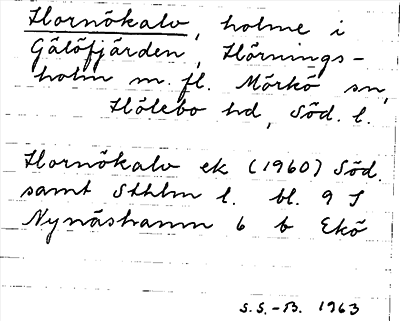 Hornökalv, holme i
Gälöfjärden, Hörnings-
holm m. fl. Mörkö sn,
Hölebo hd, Söd. l.
Hornökalv ek (1960) Söd.
samt Sthlm l. bl. 9 I
Nynäshamn 6 b Ekö
S.S.-B. 1963